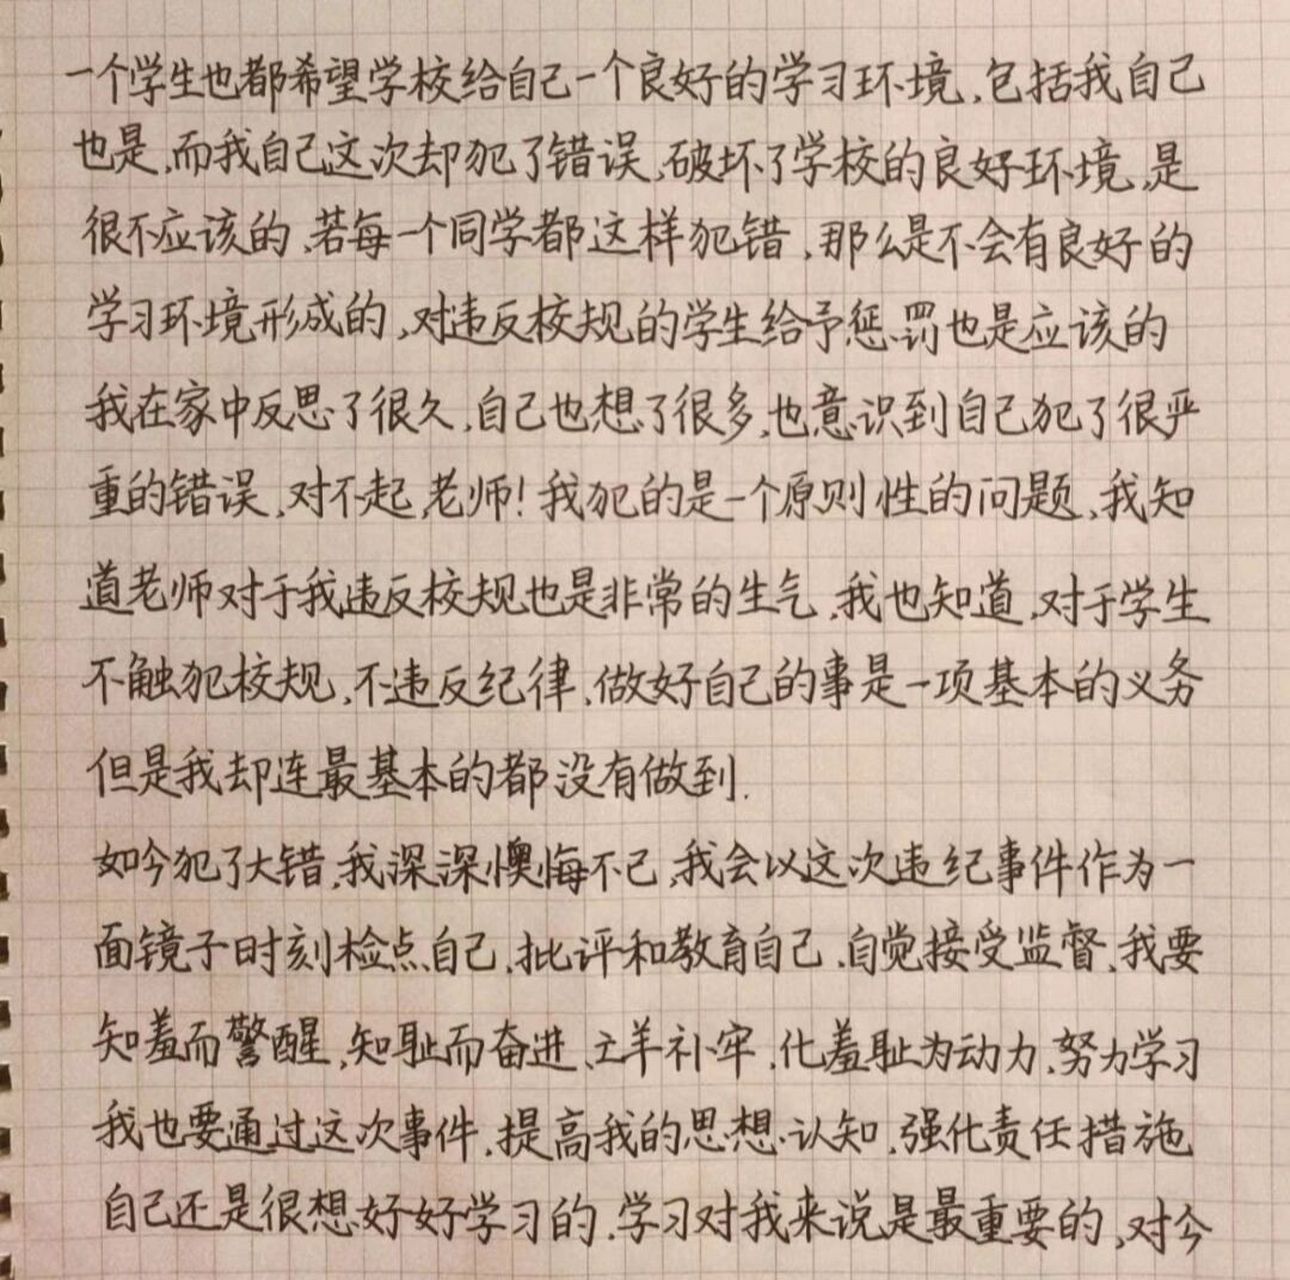 一个学生也都希望学校给自己一个良好的学习环境,包括我自己
也是,而我自己这次却犯了错误,破坏了学校的良好环境,是
很不应该的,若每一个同学都这样犯错,那么是不会有良好的
学习环境形成的,对违反校规的学生给予惩罚也是应该的
我在家中反思了很久,自己也想了很多,也意识到自己犯了很严
重的错误,对不起,老师!我犯的是一个原则性的问题,我知
道老师对于我违反校规也是非常的生气,我也知道,对于学生
不触犯校规,不违反纪律,做好自己的事是一项基本的义务
但是我却连最基本的都没有做到.
如今犯了大错,我深深懊悔不已,我会以这次违纪事件作为一
面镜子时刻检点自己,批评和教育自己,自觉接受监督,我要
知羞而警醒,知耻而奋进,亡羊补牢,化羞耻为动力,努力学习
我也要通过这次事件,提高我的思想认知,强化责任措施
自己还是很想好好学习的,学习对我来说是最重要的,对今